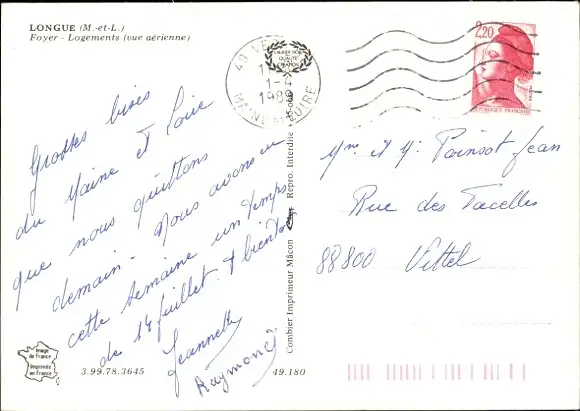 LONGUE (M.-et-L.)
Foyer - Logements (vue aérienne)
Grosses bises
du Maine et Loire
que nous quittons
demain. Nous avons eu
cette semaine un temps
de 14 juillet. A bientôt
Jeannette
Raymond
Image
de France
Imprimée
en France
3.99.78.3645
49.180
Combier Imprimeur Mâcon
Repro. Interdite
MAINE ET LOIRE
2,20
Mme et Mr Poinsot Jean
Rue des Tacelles
88800 Vittel